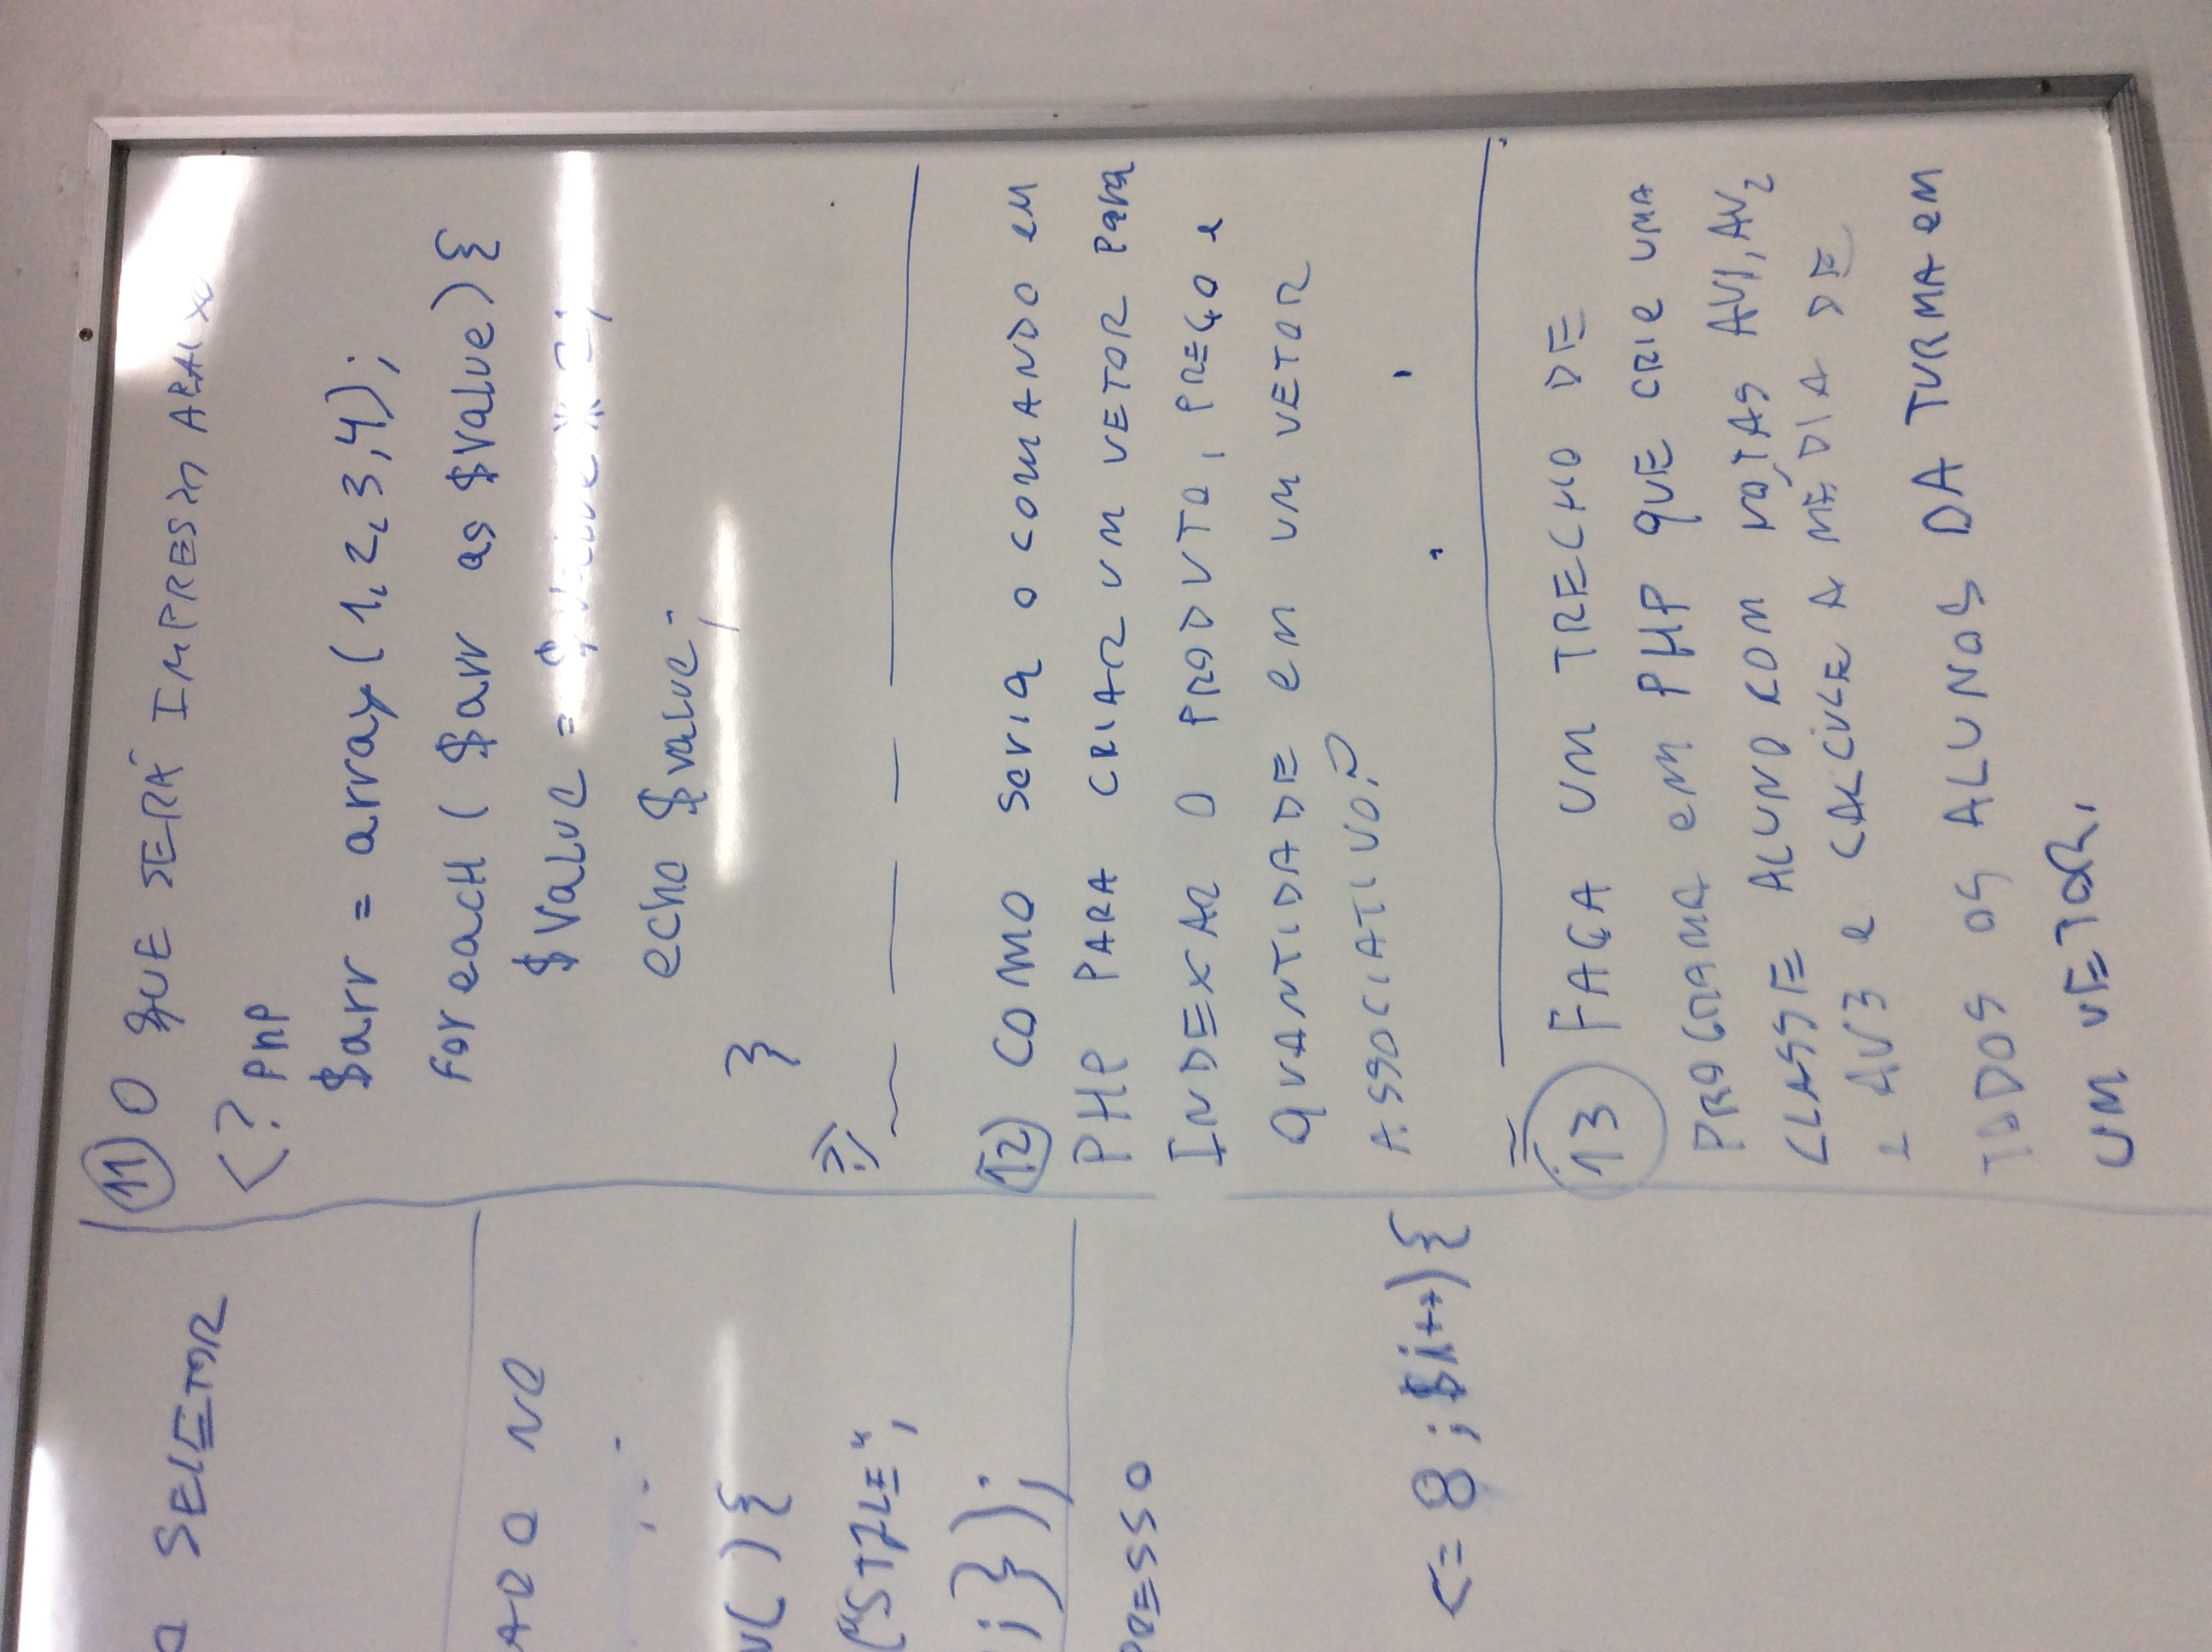 O SELETOR
NO
( ) {
("STYLE",
; } ) ;
PRESSO
<= 8 ; $i++) {
11 O QUE SERÁ IMPRESSO ABAIXO
<? PhP
$arr = array (1, 2, 3, 4);
foreacH ( $arr as $Value) {
$Value = $value *
echo $value;
}
?>
12 COMO seria o COMANDO em
PHP PARA CRIAR UM VETOR Para
INDEXAR O PRODUTO, PREÇO e
QUANTIDADE em UM VETOR
ASSOCIATIVO?
13 FAÇA UM TRECHO DE
PROGRAMA em PHP QUE CRIe UMA
CLASSE ALUNO COM NOTAS AV1, AV2
e AV3 e CALCULE A MÉDIA DE
TODOS OS ALUNOS DA TURMA em
UM VETOR.